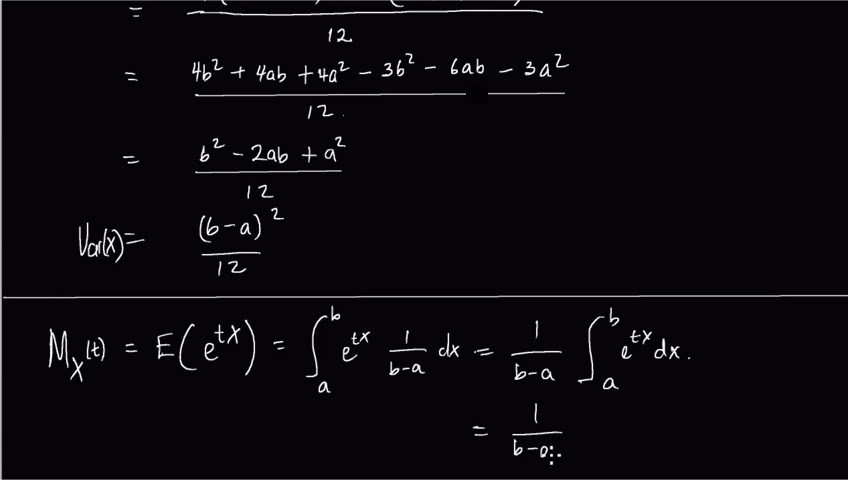 = 12
= 4b² + 4ab + 4a² - 3b² - 6ab - 3a² / 12.
= b² - 2ab + a² / 12
Var(x) = (b-a)² / 12
M_X(t) = E(e^{tX}) = ∫_a^b e^{tx} 1/(b-a) dx = 1/(b-a) ∫_a^b e^{tx} dx.
= 1/(b-a